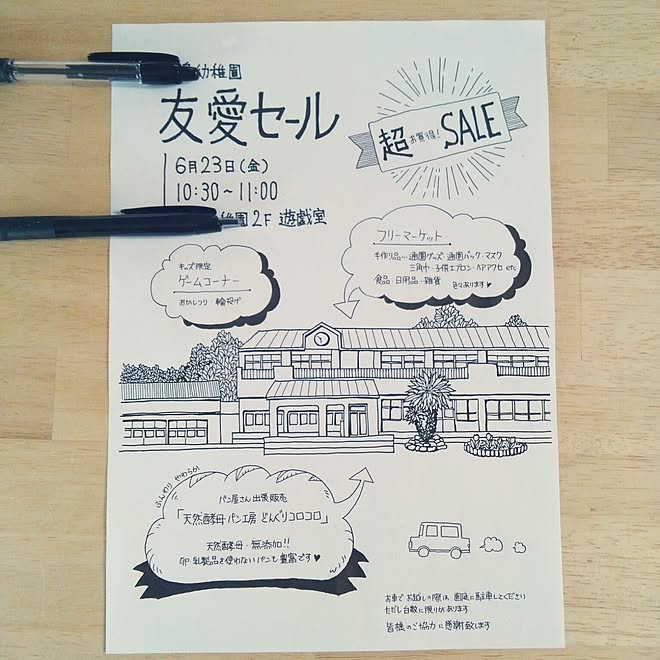 幼稚園
友愛セール
6月23日(金)
10:30～11:00
稚園2F 遊戯室
超お買得!SALE
フリーマーケット
手作り品…通園グッズ・通園バック・マスク
三角巾・子供エプロン・ヘアアクセ etc
食品・日用品・雑貨 色々あります♥
キッズ限定
ゲームコーナー
おかしつり・輪投げ
ふんわり やわらか
パン屋さん出張販売
「天然酵母パン工房 どんぐりコロコロ」
天然酵母・無添加!!
卵・乳製品を使わないパンも豊富です♥
お車でお越しの際は、園庭に駐車してください
ただし台数に限りがあります
皆様のご協力に感謝致します